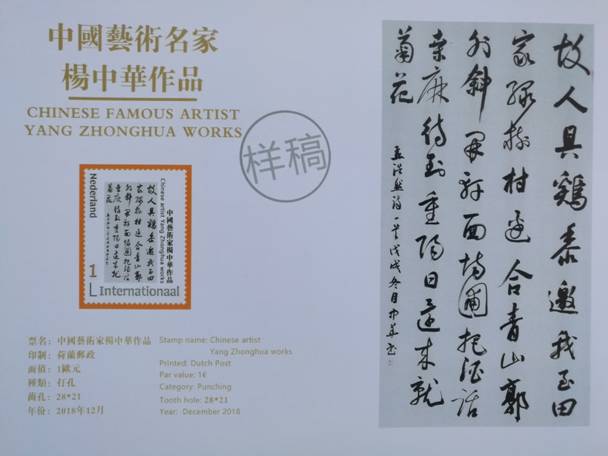 中國藝術名家
楊中華作品
CHINESE FAMOUS ARTIST
YANG ZHONGHUA WORKS
样稿
Nederland
1
Internationaal
中國藝術家楊中華作品
Chinese artist Yang Zhonghua works
票名：中國藝術家楊中華作品
印制：荷蘭郵政
面值：1歐元
種類：打孔
齒孔：28*21
年份：2018年12月
Stamp name: Chinese artist
Yang Zhonghua works
Printed: Dutch Post
Par value: 1€
Category: Punching
Tooth hole: 28*21
Year: December 2018
故人具鷄黍邀我至田
家綠樹村邊合青山郭
外斜開軒面場圃把酒話
桑麻待到重陽日還來就
菊花
孟浩然詩一首戊戌冬月中華書